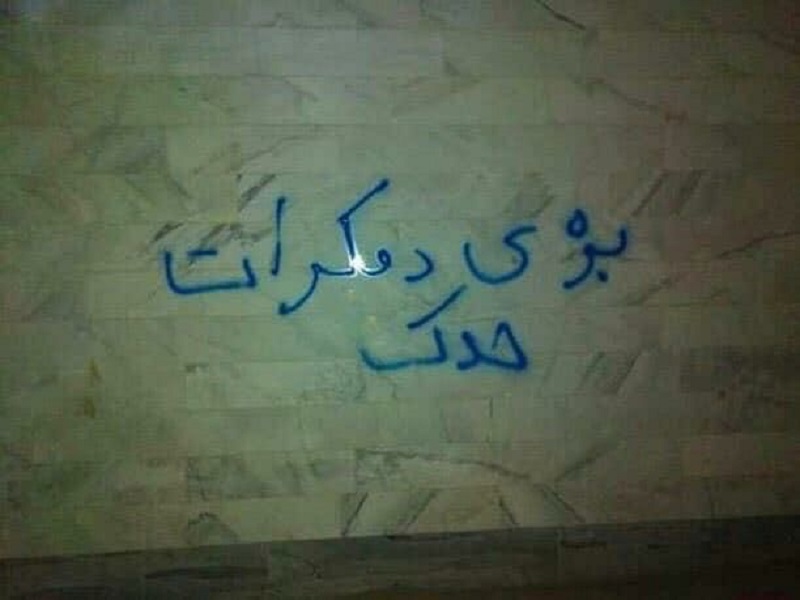 بژی دمکرات
حدک